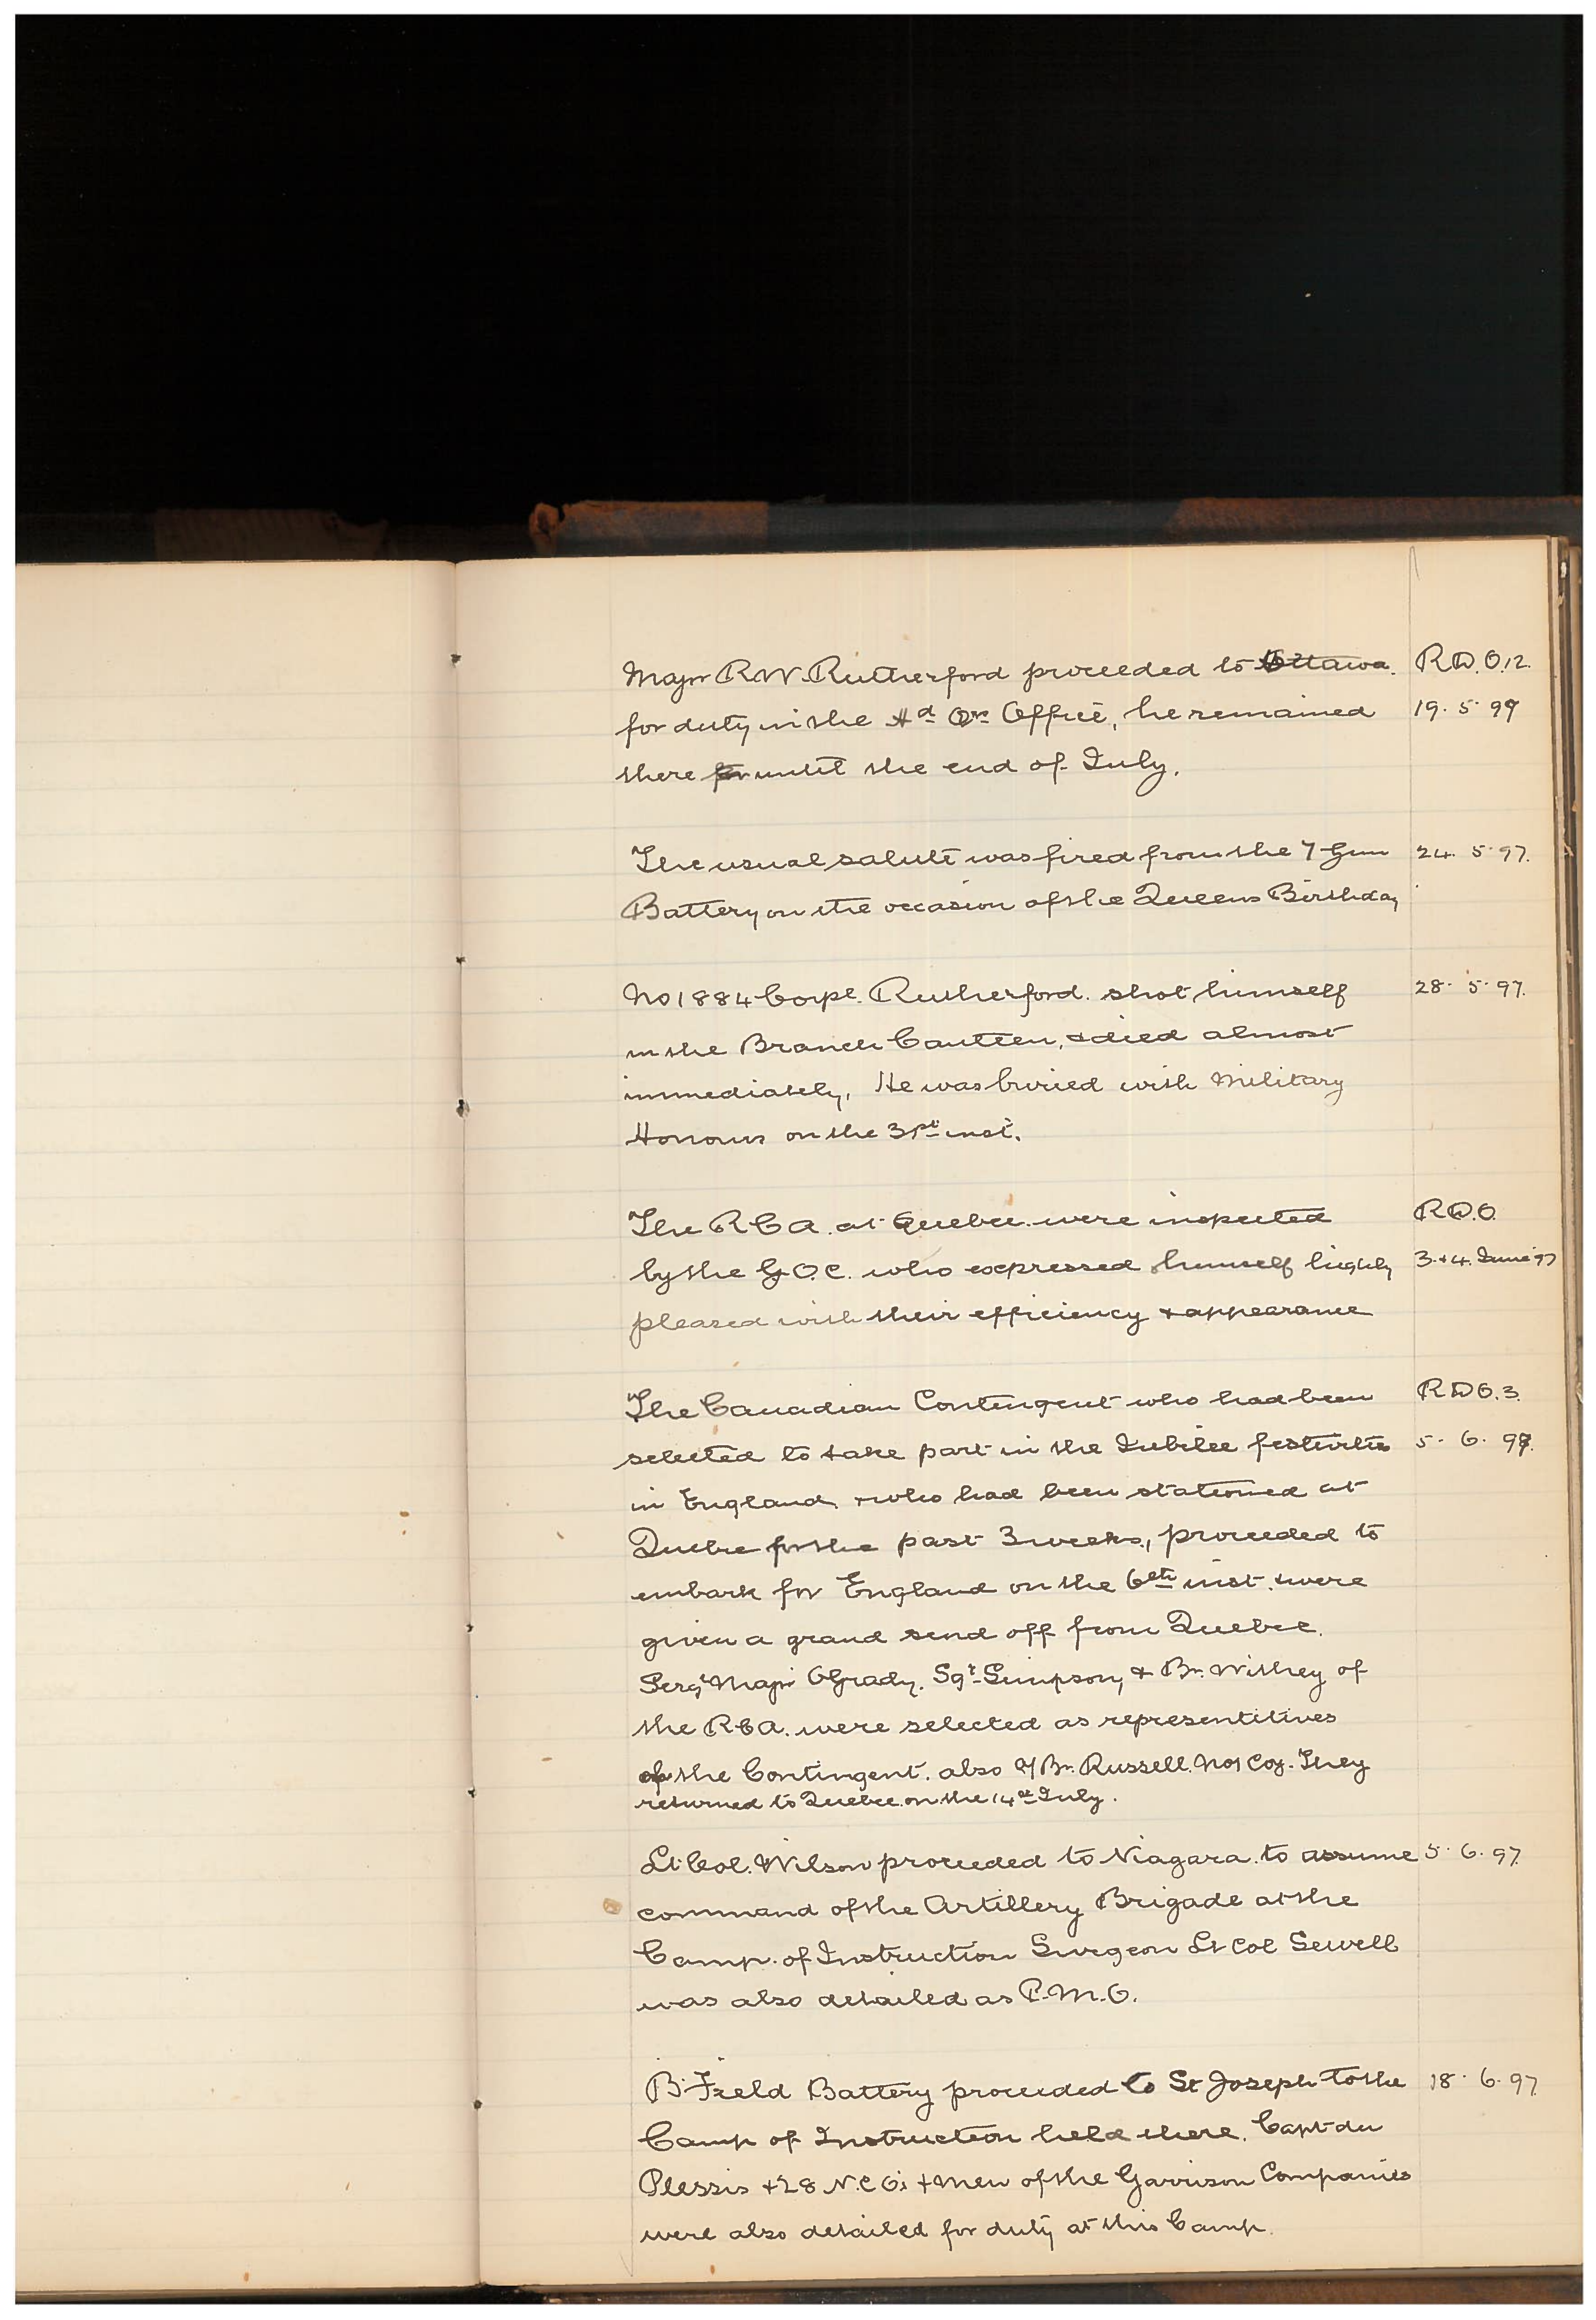 Major R W. Rutherford proceeded to Ottawa. R.D.O. 12.
for duty in the Hd Qrs Office, he remained 19. 5. 97
there until the end of July.
The usual salute was fired from the 7 Gun 24. 5. 97.
Battery on the occasion of the Queens Birthday
No 1884 Corpl. Rutherford. shot himself 28. 5. 97.
in the Branch Canteen, & died almost
immediately. He was buried with Military
Honours on the 31st inst.
The R C A. at Quebec were inspected R.D.O.
by the G.O.C. who expressed himself highly 3. & 4. June 97
pleased with their efficiency & appearance
The Canadian Contingent who had been R D O. 3.
selected to take part in the Jubilee festivities 5. 6. 97.
in England & who had been stationed at
Quebec for the past 3 weeks, proceeded to
embark for England on the 6th inst. & were
given a grand send off from Quebec.
Sergt Major OGrady, Sgt Simpson, & Br. Withey of
the R C A. were selected as representitives
of the Contingent. also a/Br. Russell. No 1 Coy. They
returned to Quebec on the 14th July.
Lt. Col. Wilson proceeded to Niagara. to assume 5. 6. 97.
command of the Artillery Brigade at the
Camp. of Instruction Surgeon Lt Col Sewell
was also detailed as P.M.O.
B. Field Battery proceeded to St Joseph to the 18. 6. 97
Camp of Instruction held there. Capt du
Plessis & 28 N.C.O's & Men of the Garrison Companies
were also detailed for duty at this Camp.